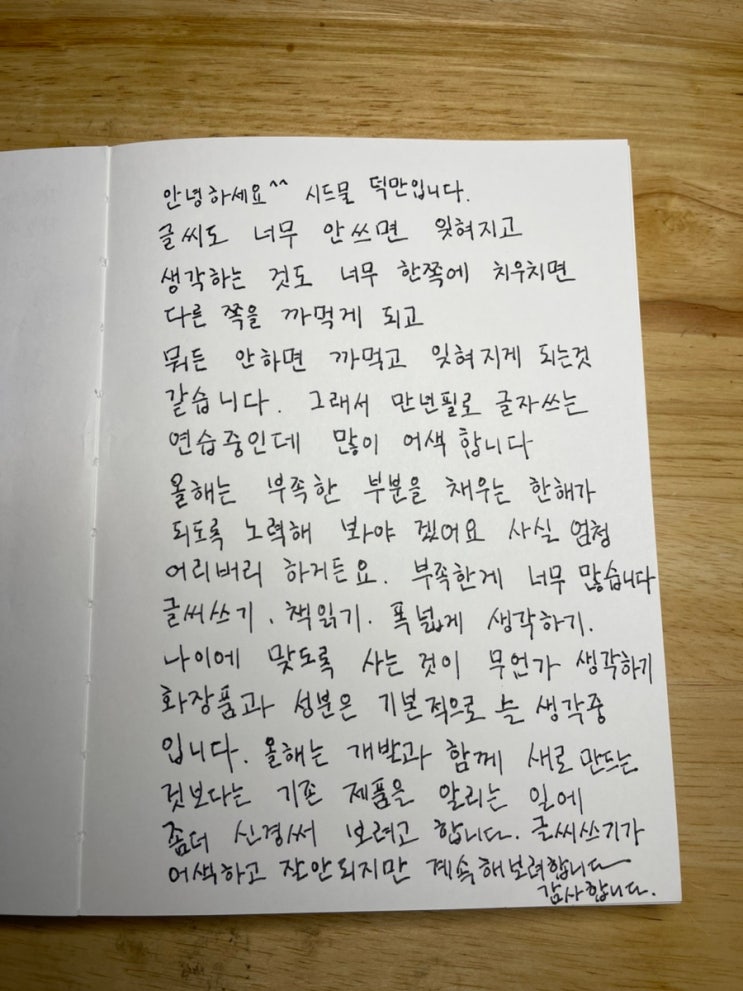 안녕하세요^^ 시드물 떡만입니다.
글씨도 너무 안쓰면 잊혀지고
생각하는 것도 너무 한쪽에 치우치면
다른 쪽을 까먹게 되고
뭐든 안하면 까먹고 잊혀지게 되는것
같습니다. 그래서 만년필로 글자쓰는
연습중인데 많이 어색 합니다
올해는 부족한 부분을 채우는 한해가
되도록 노력해 봐야 겠어요 사실 엄청
어리버리 하거든요. 부족한게 너무 많습니다
글씨쓰기. 책읽기. 폭넓게 생각하기.
나이에 맞도록 사는 것이 무언가 생각하기
화장품과 성분은 기본적으로 늘 생각중
입니다. 올해는 개발과 함께 새로 만드는
것보다는 기존 제품을 알리는 일에
좀더 신경써 보려고 합니다. 글씨쓰기가
어색하고 잘안되지만 계속해보려합니다
감사합니다.